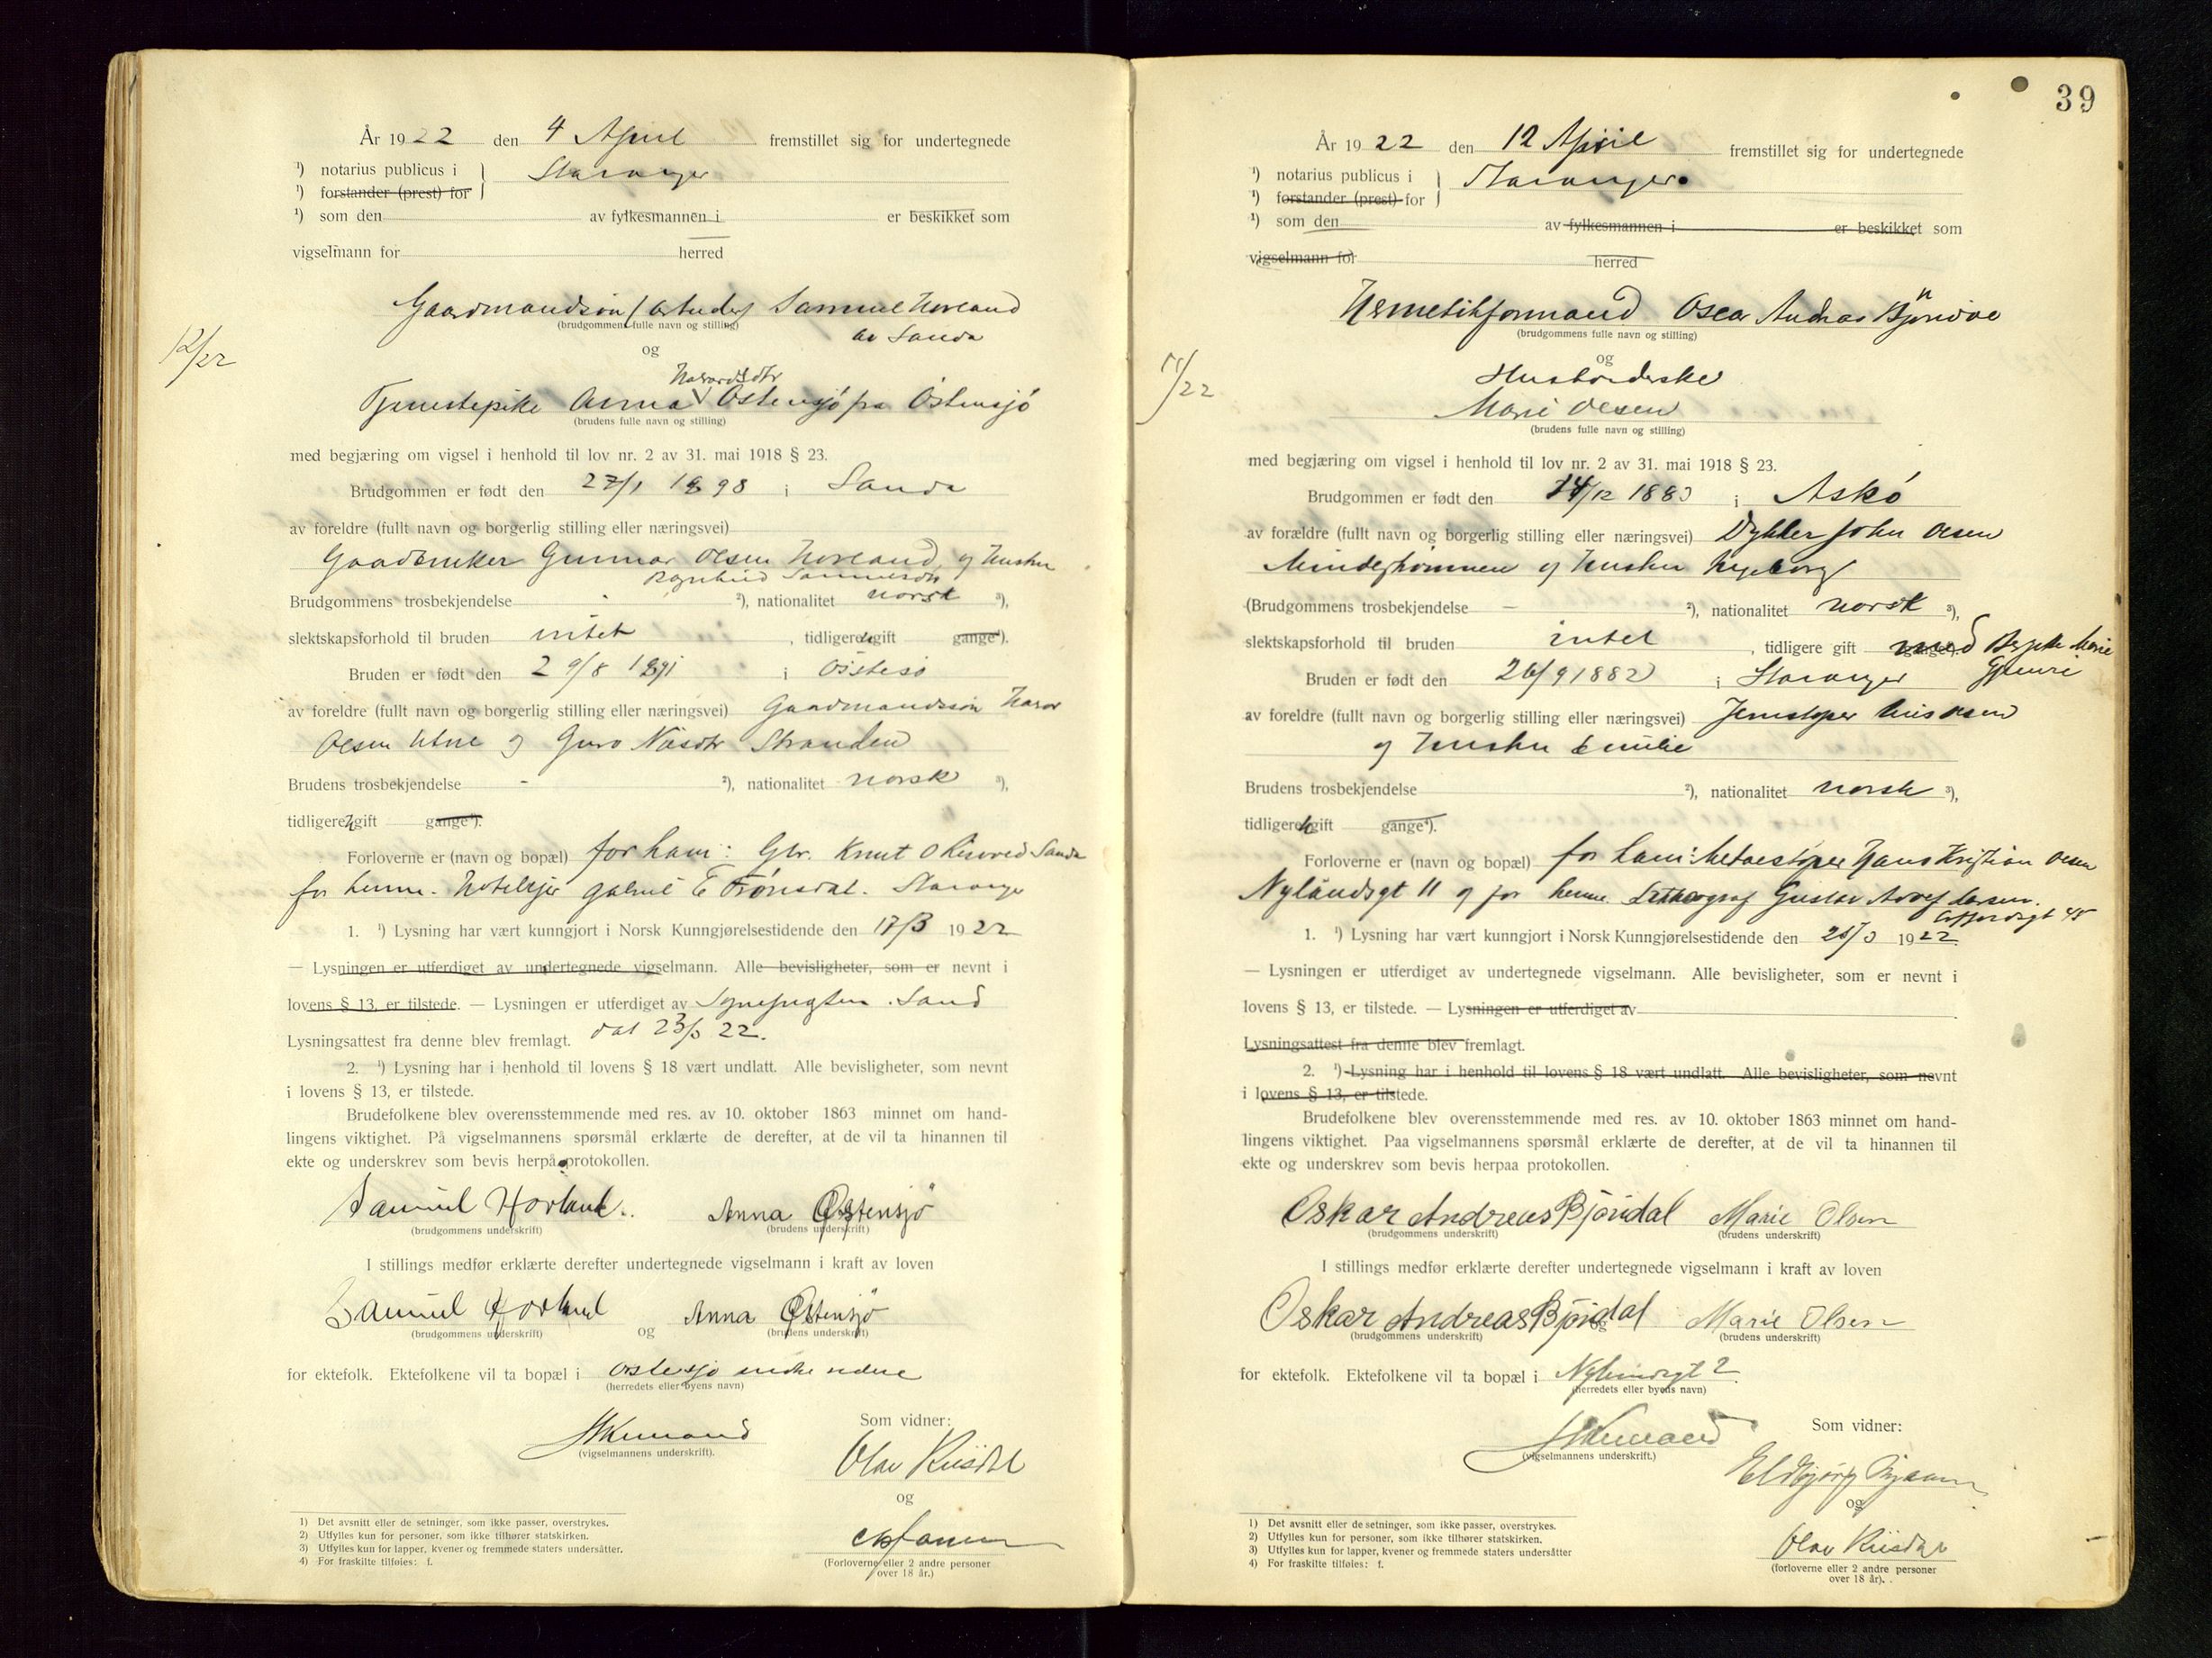 År 1922 den 4 April fremstillet sig for undertegnede
¹) notarius publicus i } Stavanger
¹) forstander (prest) for
¹) som den av fylkesmannen i er beskikket som
vigselmann for herred
Gaardmandsøn / Samuel Hovland
(brudgommens fulle navn og stilling)
av Sanda
12/22
og
Havardsdtr
Tjenestepike Anna Østensjö fra Östensjö
(brudens fulle navn og stilling)
med begjæring om vigsel i henhold til lov nr. 2 av 31. mai 1918 § 23.
Brudgommen er født den 27/1 1898 i Sanda
av foreldre (fullt navn og borgerlig stilling eller næringsvei)
Gaardbruker Gunnar Olsen Hovland og hustru
Ragnhild Samuelsdtr
Brudgommens trosbekjendelse - ²), nationalitet norsk ³),
slektskapsforhold til bruden intet , tidligere gift gange⁴).
Bruden er født den 29/8 1891 i Östesö
av foreldre (fullt navn og borgerlig stilling eller næringsvei) Gaardmandssøn Havar
Olsen Utne og Guro Nilsdtr Stranden
Brudens trosbekjendelse - ²), nationalitet norsk ³),
tidligere gift gange⁴).
Forloverne er (navn og bopæl) for ham: Gbr. Knut O Sanda
for henne. Hoteleier Gabriel E Frönsdal. Stavanger
1. ¹) Lysning har vært kunngjort i Norsk Kunngjørelsestidende den 17/3 1922
— Lysningen er utferdiget av undertegnede vigselmann. Alle bevisligheter, som er nevnt i
lovens § 13, er tilstede. — Lysningen er utferdiget av Sognepresten i Sand
Lysningsattest fra denne blev fremlagt. dat 23/3 22.
2. ¹) Lysning har i henhold til lovens § 18 vært undlatt. Alle bevisligheter, som nevnt
i lovens § 13, er tilstede.
Brudefolkene blev overensstemmende med res. av 10. oktober 1863 minnet om hand-
lingens viktighet. På vigselmannens spørsmål erklærte de derefter, at de vil ta hinannen til
ekte og underskrev som bevis herpå protokollen.
Samuel Hovland. Anna Østensjö
(brudgommens underskrift) (brudens underskrift)
I stillings medfør erklærte derefter undertegnede vigselmann i kraft av loven
Samuel Hovland og Anna Østensjö
(brudgommens underskrift) (brudens underskrift)
for ektefolk. Ektefolkene vil ta bopæl i Östesjö
(herredets eller byens navn)
(vigselmannens underskrift).
Som vidner:
Olav Riisdal
og
(Forloverne eller 2 andre personer
over 18 år.)
1) Det avsnitt eller de setninger, som ikke passer, overstrykes.
2) Utfylles kun for personer, som ikke tilhører statskirken.
3) Utfylles kun for lapper, kvener og fremmede staters undersåtter.
4) For fraskilte tilføies: f.
39
År 1922 den 12 April fremstillet sig for undertegnede
¹) notarius publicus i } Stavanger
¹) forstander (prest) for
¹) som den av fylkesmannen i er beskikket som
vigselmann for herred
Hermetikformand Oscar Andreas Bjöndal
(brudgommens fulle navn og stilling)
11/22
og
Husholderske
Marie Olsen
(brudens fulle navn og stilling)
med begjæring om vigsel i henhold til lov nr. 2 av 31. mai 1918 § 23.
Brudgommen er født den 14/12 1883 i Askö
av forældre (fullt navn og borgerlig stilling eller næringsvei) Dykker John Olsen
og hustru Ingeborg
(Brudgommens trosbekjendelse - ²), nationalitet norsk ³),
slektskapsforhold til bruden intet , tidligere gift med Marie
Bruden er født den 26/9 1882 i Stavanger
av foreldre (fullt navn og borgerlig stilling eller næringsvei) Jernstøper Olsen
og hustru Emilie
Brudens trosbekjendelse ²), nationalitet norsk ³),
tidligere gift gange⁴).
Forloverne er (navn og bopæl) for ham: Hans Kristian Olsen
Nylandsgt 11 og for henne Lithograf Gustav Adolf Larsen.
45
1. ¹) Lysning har vært kunngjort i Norsk Kunngjørelsestidende den 25/3 1922
— Lysningen er utferdiget av undertegnede vigselmann. Alle bevisligheter, som er nevnt i
lovens § 13, er tilstede. — Lysningen er utferdiget av
Lysningsattest fra denne blev fremlagt.
2. ¹) Lysning har i henhold til lovens § 18 vært undlatt. Alle bevisligheter, som nevnt
i lovens § 13, er tilstede.
Brudefolkene blev overensstemmende med res. av 10. oktober 1863 minnet om hand-
lingens viktighet. Paa vigselmannens spørsmål erklærte de derefter, at de vil ta hinannen til
ekte og underskrev som bevis herpaa protokollen.
Oskar Andreas Bjöndal Marie Olsen
(brudgommens underskrift) (brudens underskrift)
I stillings medfør erklærte derefter undertegnede vigselmann i kraft av loven
Oskar Andreas Bjöndal og Marie Olsen
(brudgommens underskrift) (brudens underskrift)
for ektefolk. Ektefolkene vil ta bopæl i Nylandsgt 2
(herredets eller byens navn)
(vigselmannens underskrift.)
Som vidner:
Eldbjørg
og
Olav Riisdal
(forloverne eller 2 andre personer
over 18 år).
1) Det avsnitt eller de setninger, som ikke passer, overstrykes.
2) Utfylles kun for personer, som ikke tilhører statskirken.
3) Utfylles kun for lapper, kvener og fremmede staters undersåtter
4) For fraskilte tilføies: f.